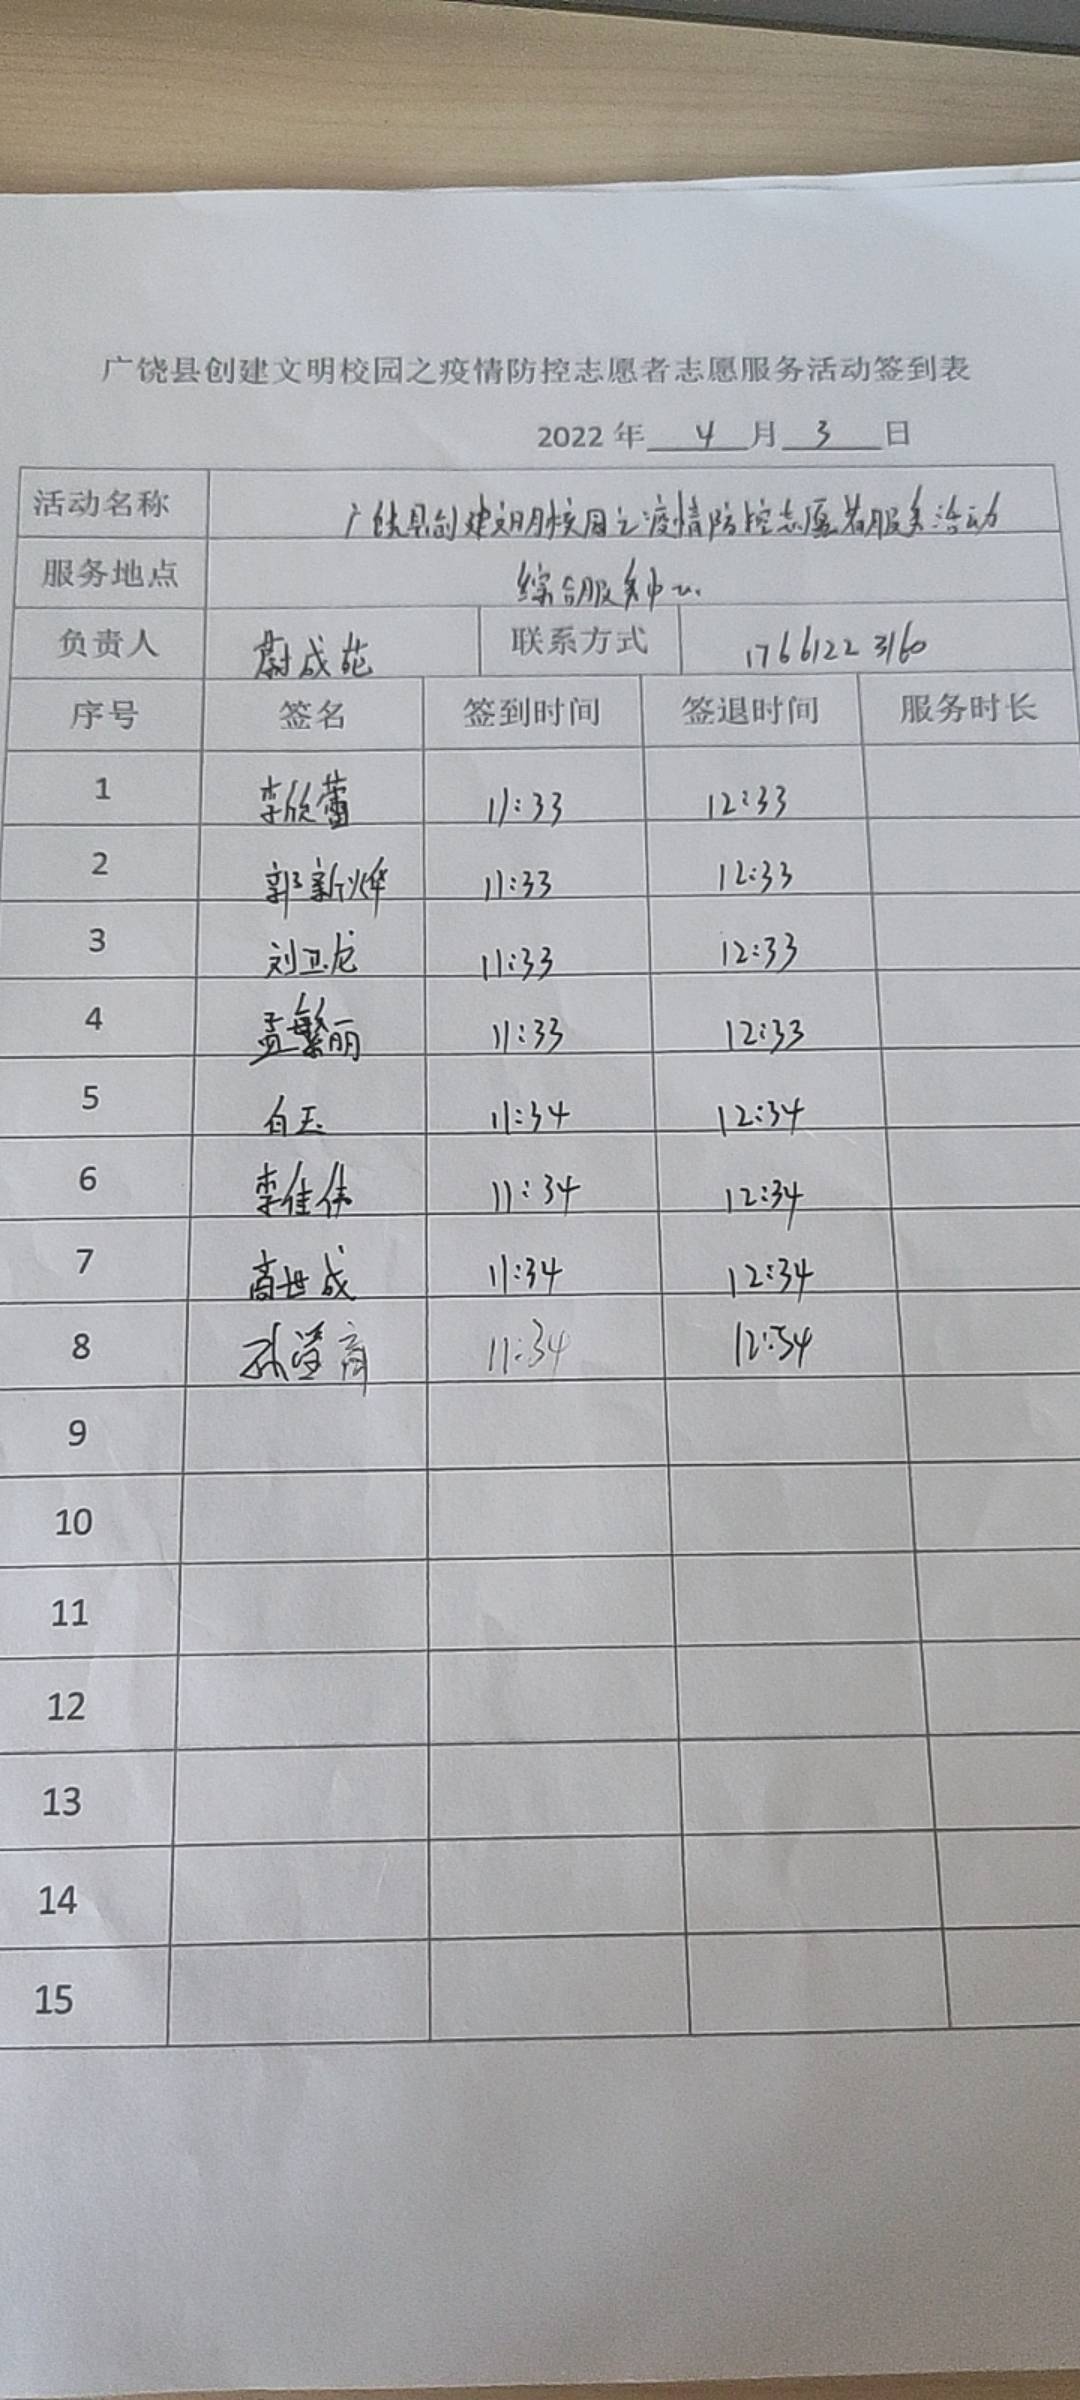 广饶县创建文明校园之疫情防控志愿者志愿服务活动签到表
2022 年 4 月 3 日
活动名称 广饶县创建文明校园之疫情防控志愿者服务活动
服务地点 综合服务中心
负责人 蔚成苑 联系方式 17661223160
序号 签名 签到时间 签退时间 服务时长
1 李欣蕾 11:33 12:33
2 郭新烨 11:33 12:33
3 刘卫龙 11:33 12:33
4 孟繁丽 11:33 12:33
5 白玉 11:34 12:34
6 李佳伟 11:34 12:34
7 高世成 11:34 12:34
8 孙 11:34 12:34
9
10
11
12
13
14
15